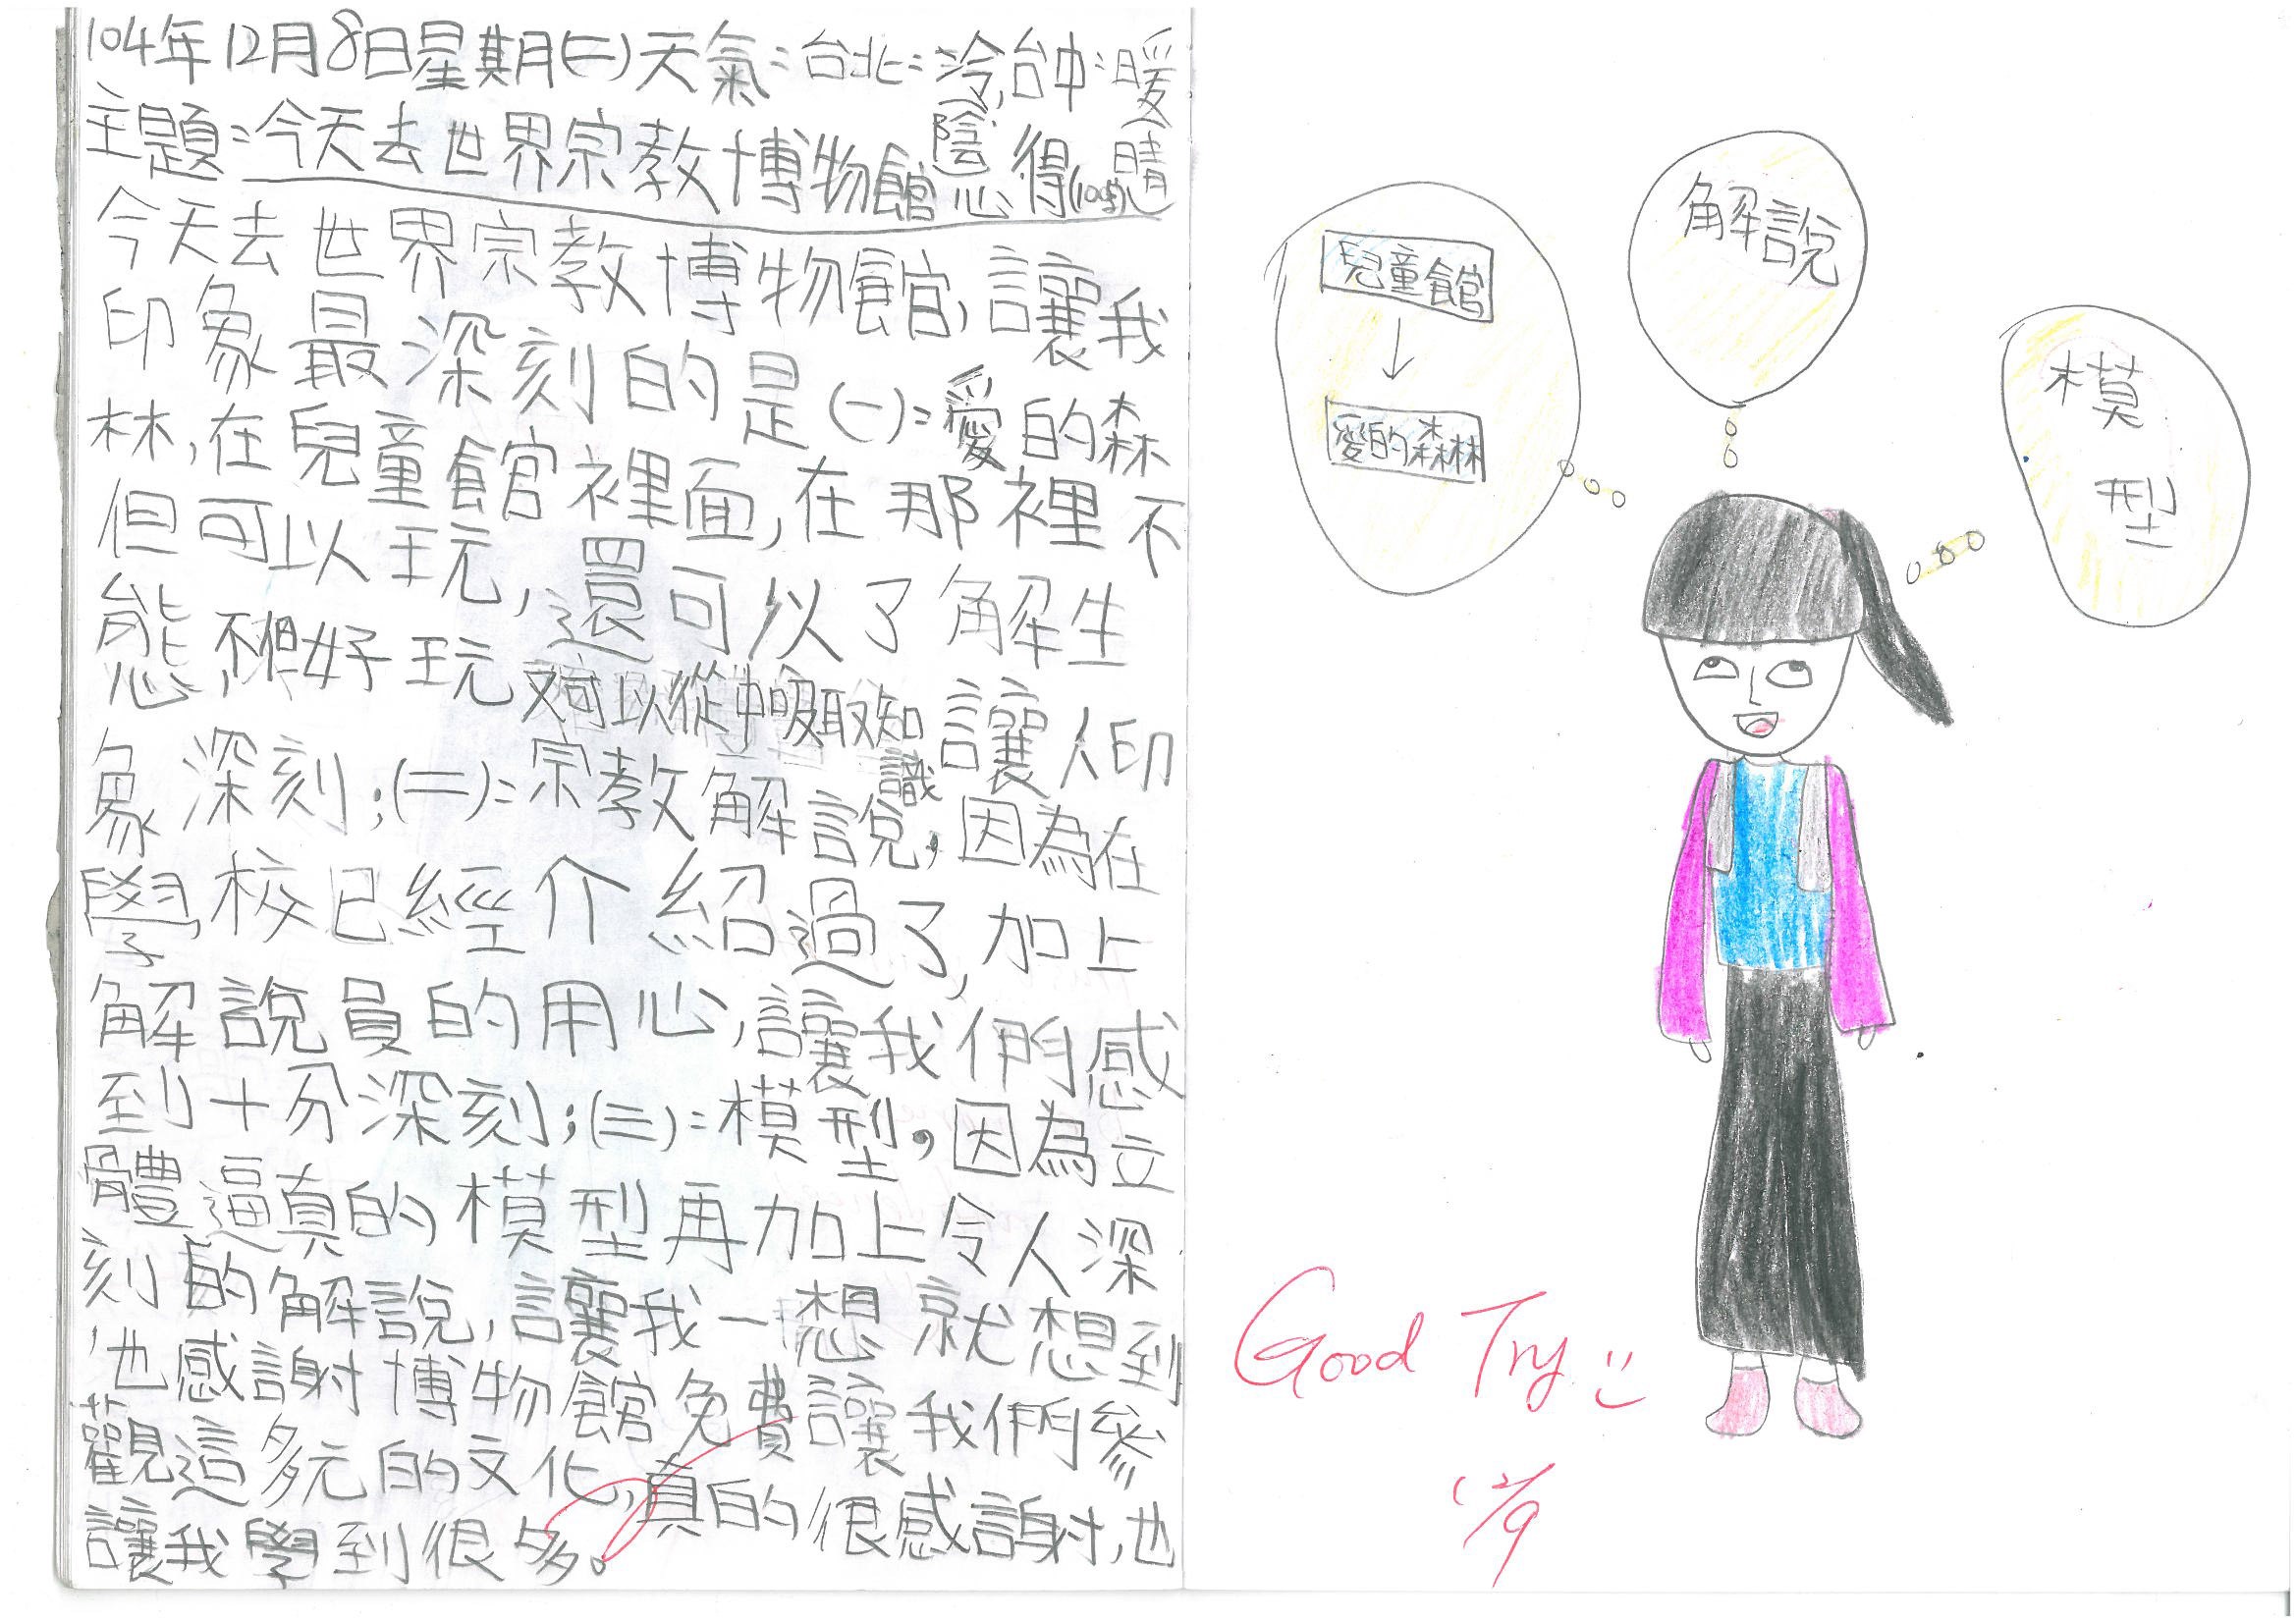 104年12月8日星期(二)天氣:台北:冷,陰 台中:暖,晴
主題:今天去世界宗教博物館心得
今天去世界宗教博物館,讓我
印象最深刻的是(一):愛的森
林,在兒童館裡面,在那裡不
但可以玩,還可以了解生
態,不但好玩又可以從中吸取知識讓人印
象深刻;(二):宗教解說,因為在
學校已經介紹過了,加上
解說員的用心,讓我們感
到十分深刻;(三):模型,因為立
體逼真的模型再加上令人深
刻的解說,讓我一想就想到
,也感謝博物館免費讓我們參
觀這多元的文化,真的很感謝,也
讓我學到很多。
兒童館
↓
愛的森林
解說
模
型
Good Try
12/9